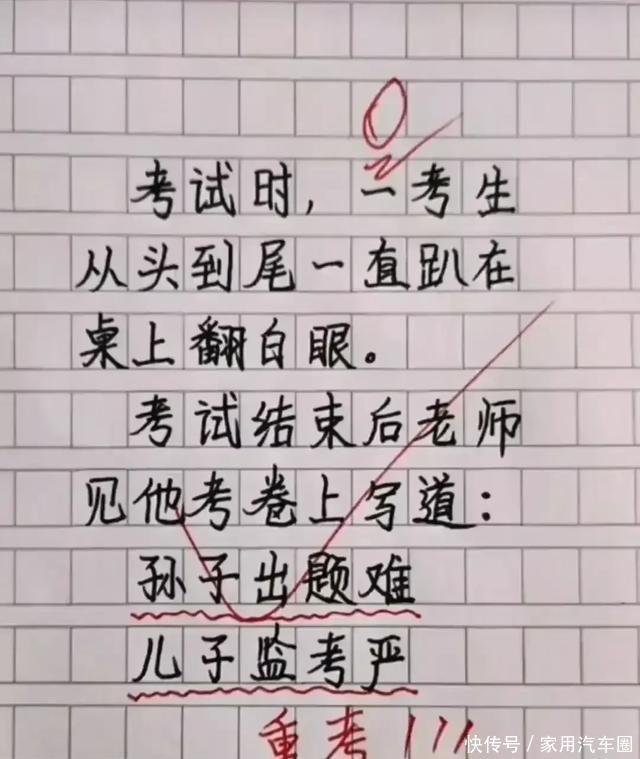 0
考试时，一考生
从头到尾一直趴在
桌上翻白眼。
考试结束后老师
见他考卷上写道：
孙子出题难
儿子监考严
重考！！！
快传号／家用汽车圈